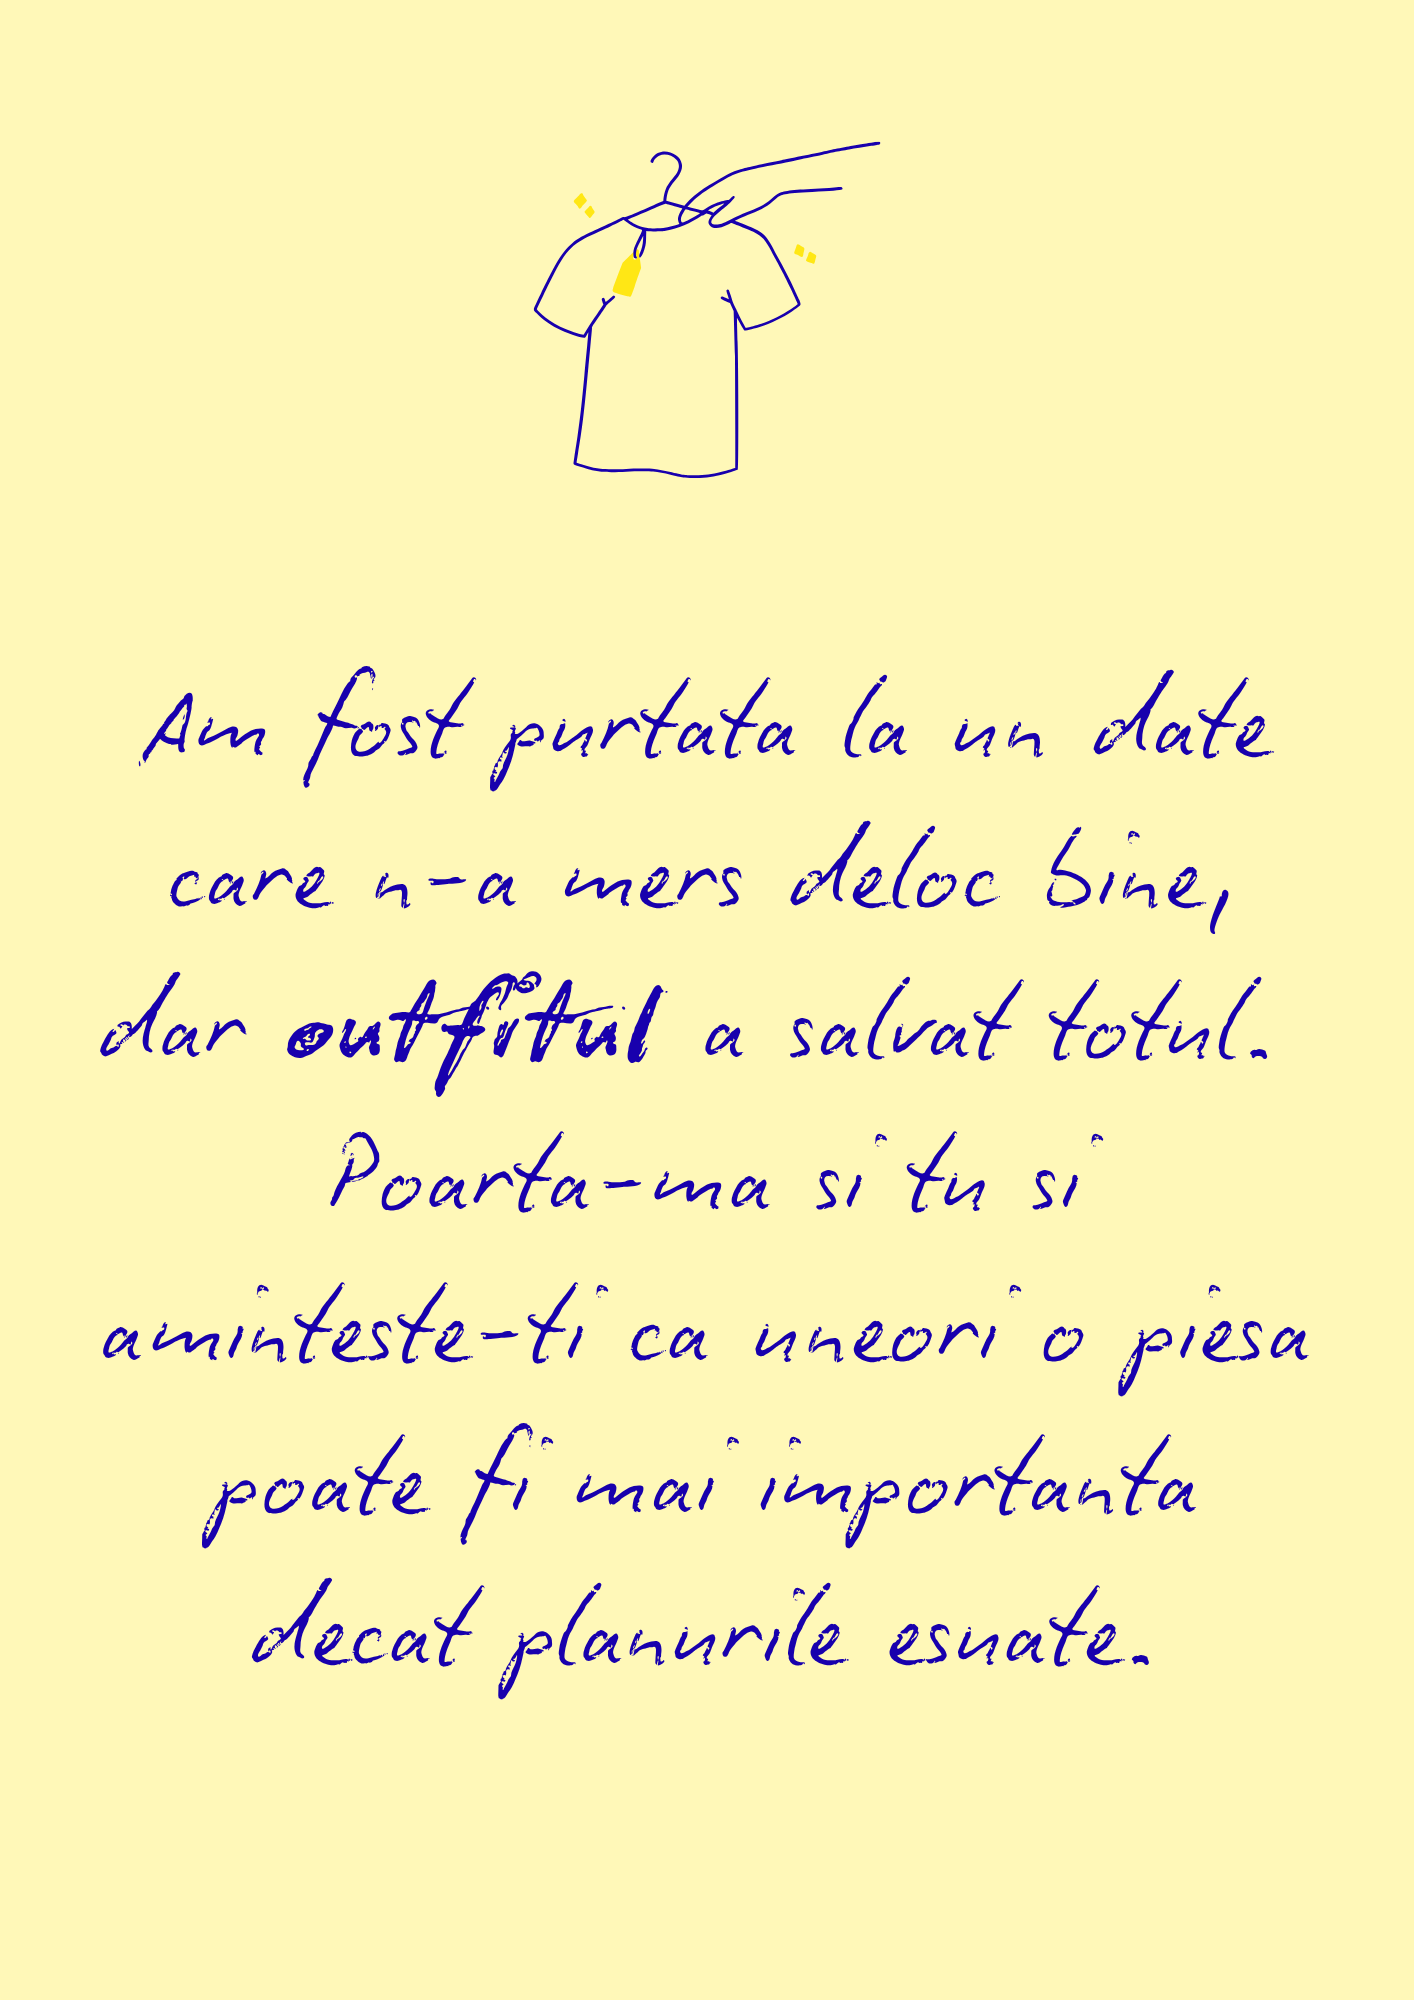 Am fost purtata la un date
care n-a mers deloc bine,
dar outfitul a salvat totul.
Poarta-ma si tu si
aminteste-ti ca uneori o piesa
poate fi mai importanta
decat planurile esuate.